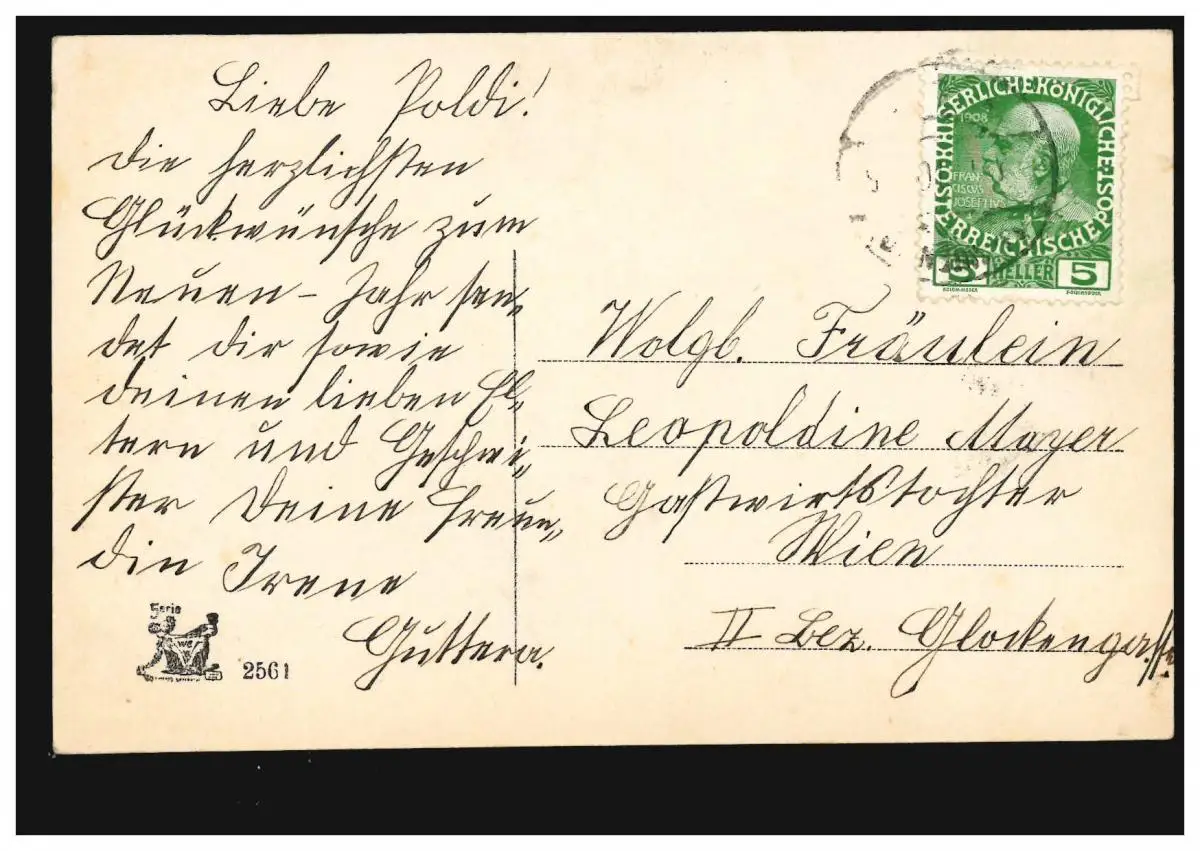 Liebe Poldi!
die herzlichsten
Glückwünsche zum
Neuen-Jahr sen„
det dir sowie
deinen lieben El„
tern und Geschwi„
ster Deine Freun„
din Irene
Guttera.
Serie
WB
2561
KAISERLICHEKÖNIGLICHE
ÖSTERREICHISCHEPOST
1908
FRAN
CISCVS
JOSEPHVS
5 HELLER 5
Wolgb. Fräulein
Leopoldine Mayer
Gastwirtstochter
Wien
II Bez. Glockengasse